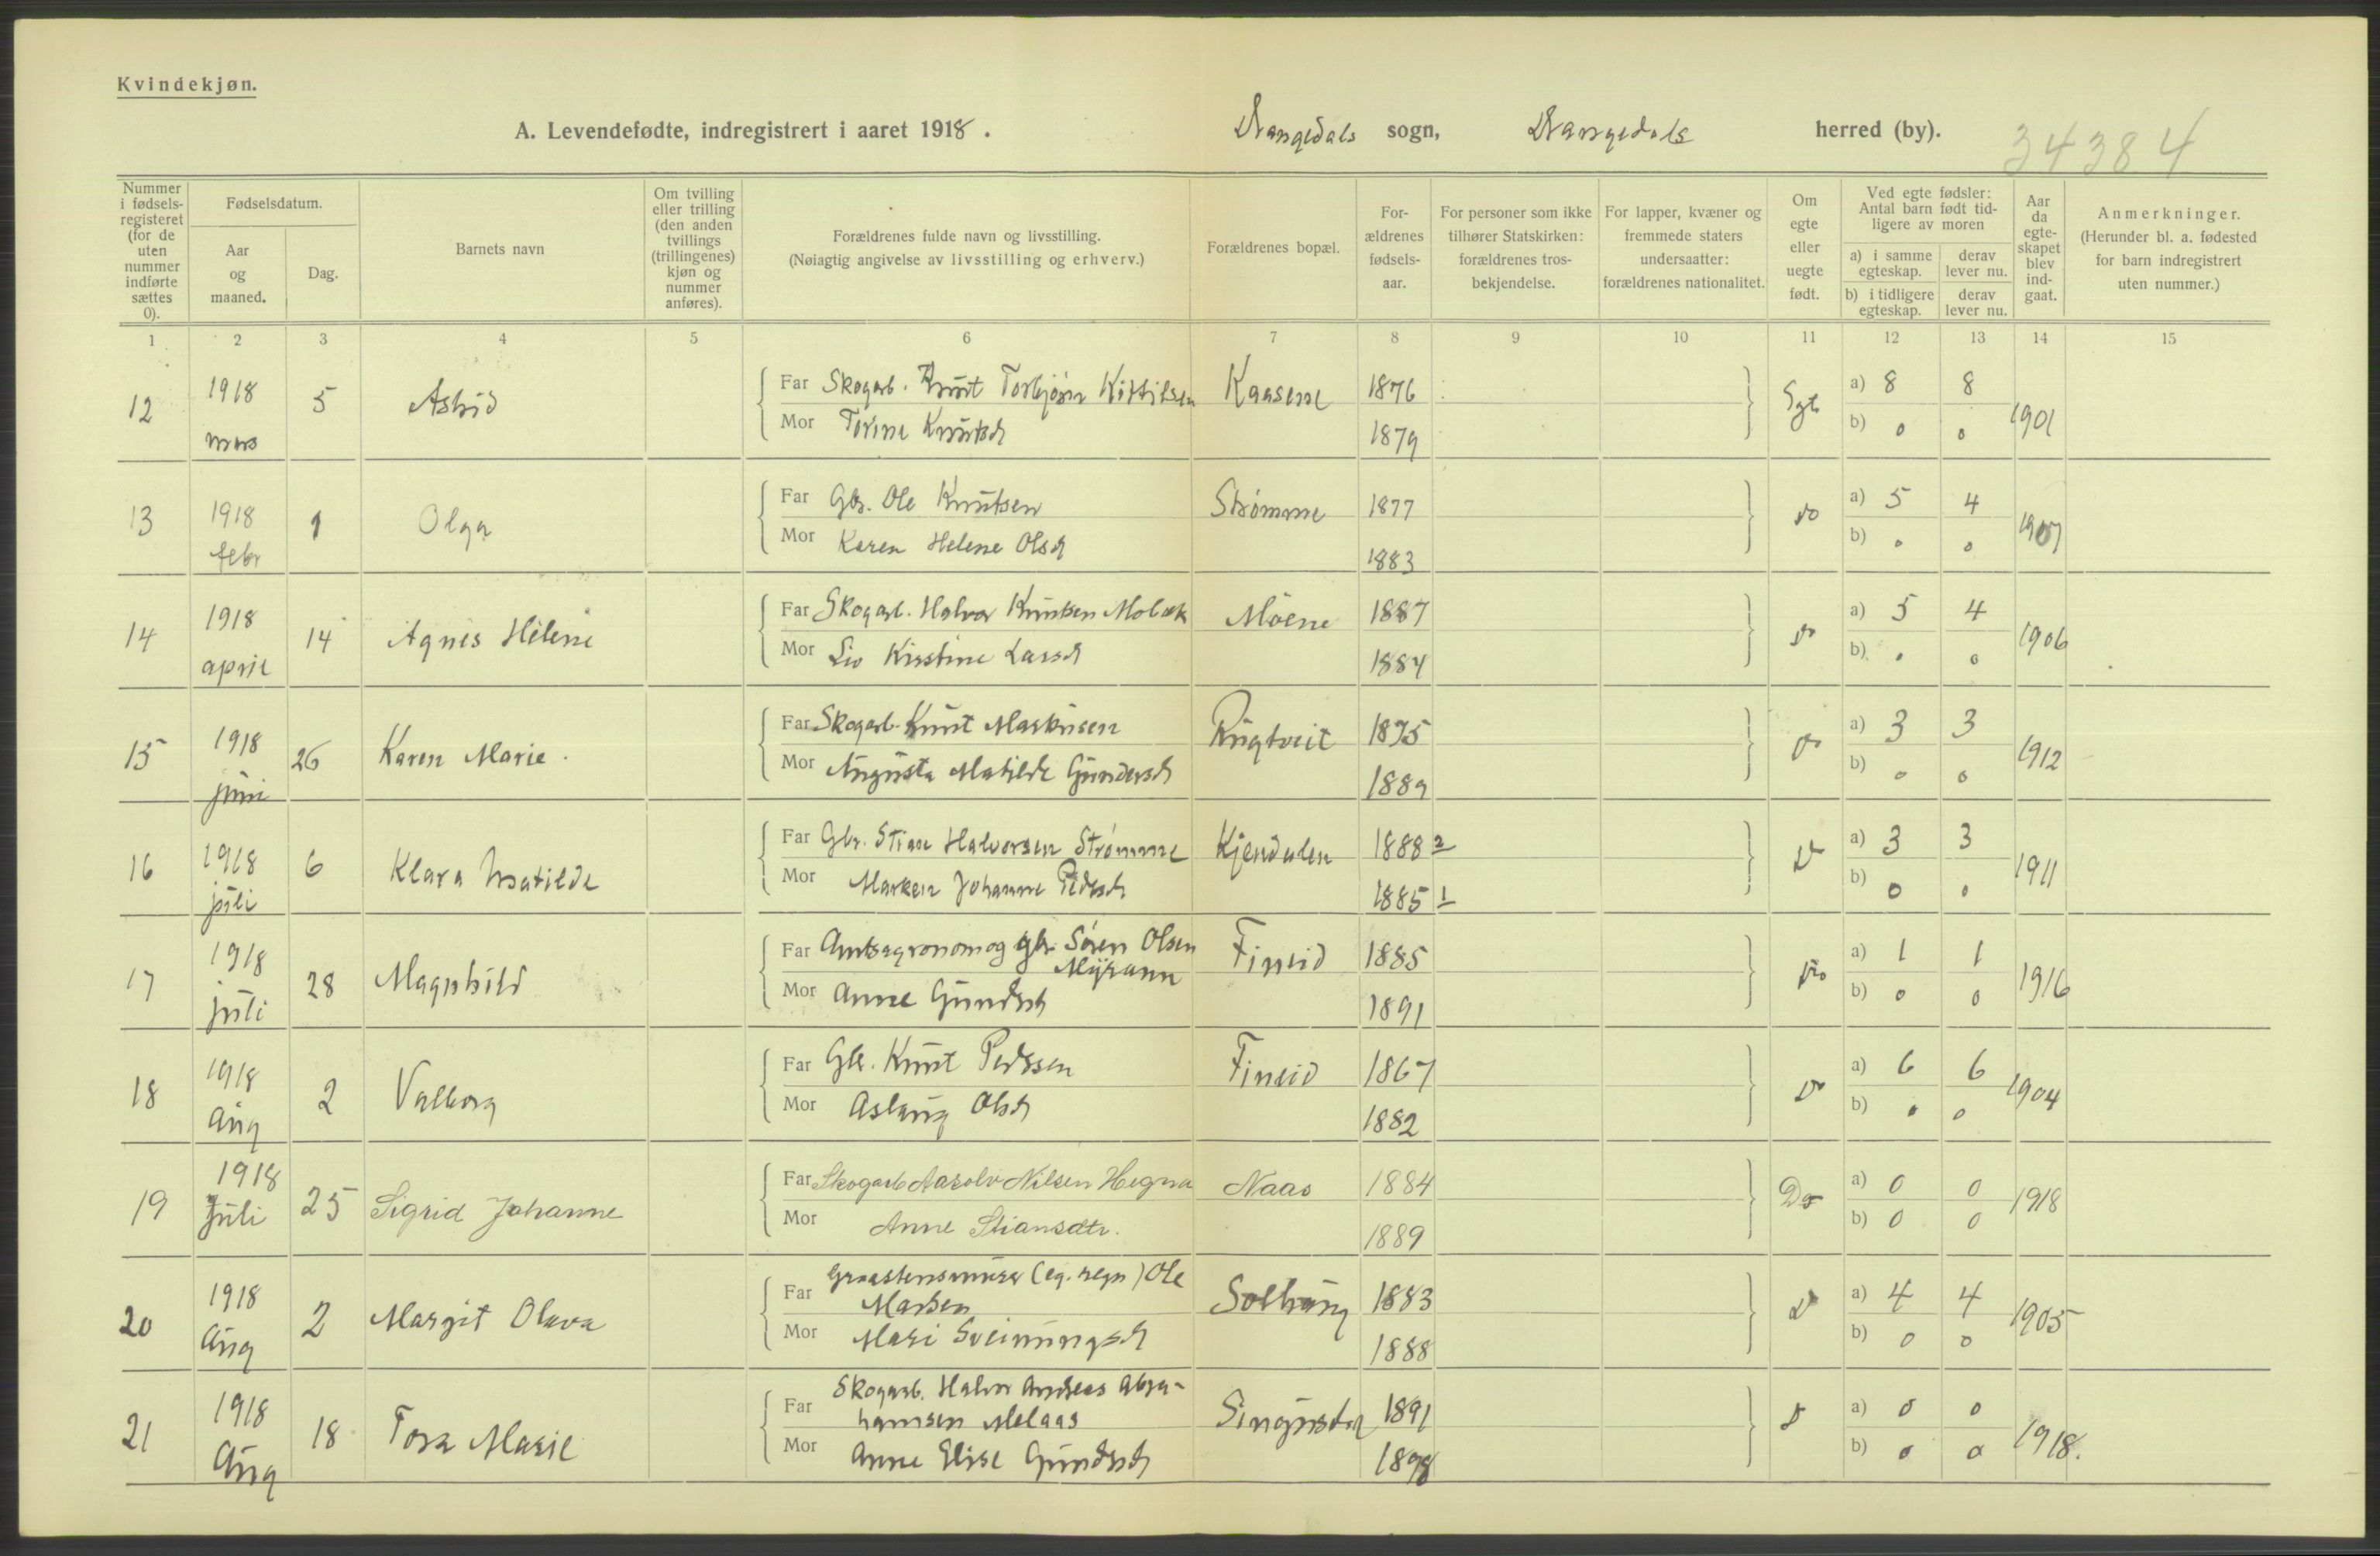 Kvindekjøn.
A. Levendefødte, indregistrert i aaret 1918. Drangedals sogn, Drangedals herred (by). 34384
Nummer i fødselsregisteret (for de uten nummer indførte sættes 0).
Fødselsdatum.
Aar og maaned.
Dag.
Barnets navn
Om tvilling eller trilling (den anden tvillings (trillingenes) kjøn og nummer anføres).
Forældrenes fulde navn og livsstilling.
(Nøiagtig angivelse av livsstilling og erhverv.)
Forældrenes bopæl.
Forældrenes fødselsaar.
For personer som ikke tilhører Statskirken: forældrenes trosbekjendelse.
For lapper, kvæner og fremmede staters undersaatter: forældrenes nationalitet.
Om egte eller uegte født.
Ved egte fødsler: Antal barn født tidligere av moren
a) i samme egteskap. derav lever nu.
b) i tidligere egteskap. derav lever nu.
Aar da egteskapet blev indgaat.
Anmerkninger.
(Herunder bl. a. fødested for barn indregistrert uten nummer.)
1 2 3 4 5 6 7 8 9 10 11 12 13 14 15
12 1918 mars 5 Astrid
Far Skogarb. Knut Torbjörn Kittilsen Kaasene 1876 Egte a) 8 8 1901
Mor Torine Knutsd 1879 b) 0 0
13 1918 febr 1 Olga
Far Gbr. Ole Knutsen Strömme 1877 do a) 5 4 1907
Mor Karen Helene Olsd 1883 b) 0 0
14 1918 april 14 Agnes Helene
Far Skogarb. Halvor Knutsen Mobæk Moene 1887 do a) 5 4 1906
Mor Liv Kirstine Larsd 1884 b) 0 0
15 1918 juni 26 Karen Marie
Far Skogarb. Knut Markusen Rugtveit 1875 do a) 3 3 1912
Mor Augusta Matilde Gundersd 1889 b) 0 0
16 1918 juli 6 Klara Matilde
Far Gbr. Stian Halvorsen Strømme Kjendalen 1888 2 D a) 3 3 1911
Mor Maren Johanne Pedersd 1885 1 b) 0 0
17 1918 juli 28 Magnhild
Far Amtsagronom og gbr. Sören Olsen Myrann Fineid 1885 Do a) 1 1 1916
Mor Anne Gundersd 1891 b) 0 0
18 1918 Aug 2 Valborg
Far Gbr. Knut Perssen Fineid 1867 Do a) 6 6 1904
Mor Aslaug Olsd 1882 b) 0 0
19 1918 Juli 25 Sigrid Johanne
Far Skogarb Aasolv Nilsen Hegna Naas 1884 Do a) 0 0 1918
Mor Anne Stiansdtr. 1889 b) 0 0
20 1918 Aug 2 Margit Olava
Far Graastensmurer (eg. regn) Ole Madsen Solhaug 1883 D a) 4 4 1905
Mor Mari Sveinungsd 1888 b) 0 0
21 1918 Aug 18 Tora Marie
Far Skogarb. Halvor Andreas Abrahamsen Melaas 1891 D a) 0 0 1918.
Mor Anne Elise Gundersd 1898 b) 0 0